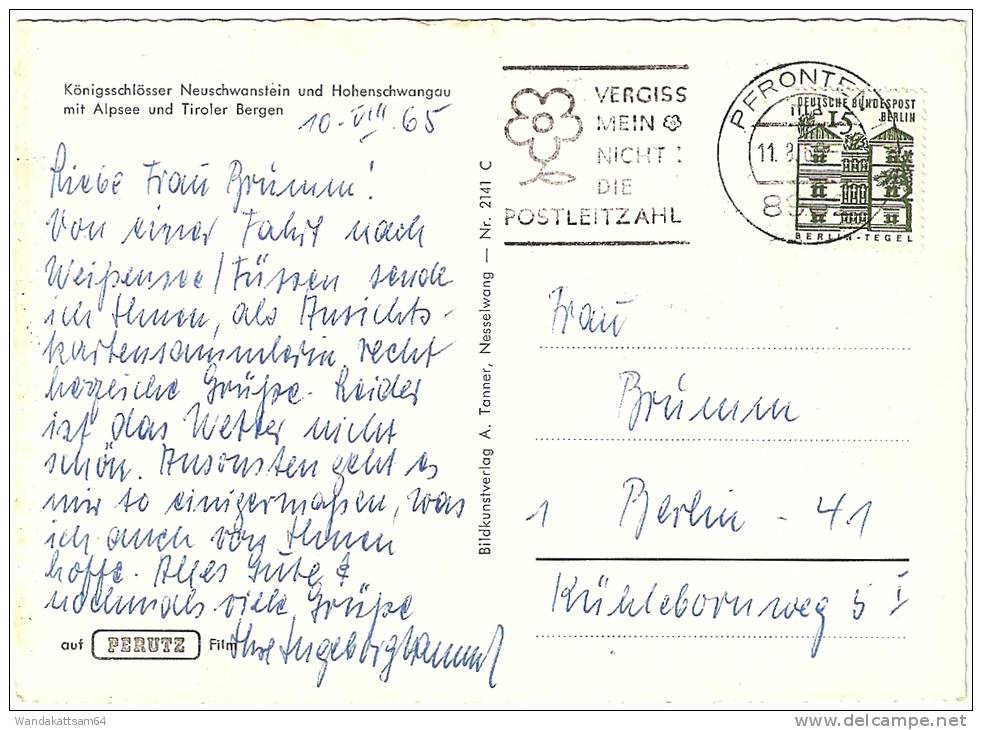 Königsschlösser Neuschwanstein und Hohenschwangau
mit Alpsee und Tiroler Bergen
10-VIII.65
Liebe Frau Brümm!
Von einer Fahrt nach
Weißensee/Füssen sende
ich Ihnen, als Ansichts-
kartensammlerin recht
herzliche Grüße. Leider
ist das Wetter nicht
schön. Ansonsten geht es
mir so einigermaßen, was
ich auch von Ihnen
hoffe. Alles Gute &
nochmals viele Grüße
Ihre Ingeborg
auf PERUTZ Film
Bildkunstverlag A. Tanner, Nesselwang — Nr. 2141 C
VERGISS
MEIN
NICHT :
DIE
POSTLEITZAHL
PFRONTEN
11.8.
DEUTSCHE BUNDESPOST
BERLIN
15
BERLIN-TEGEL
Frau
Brümm
1 Berlin - 41
Kühlebornweg 5 I
Wandakattsam64
www.delcampe.net